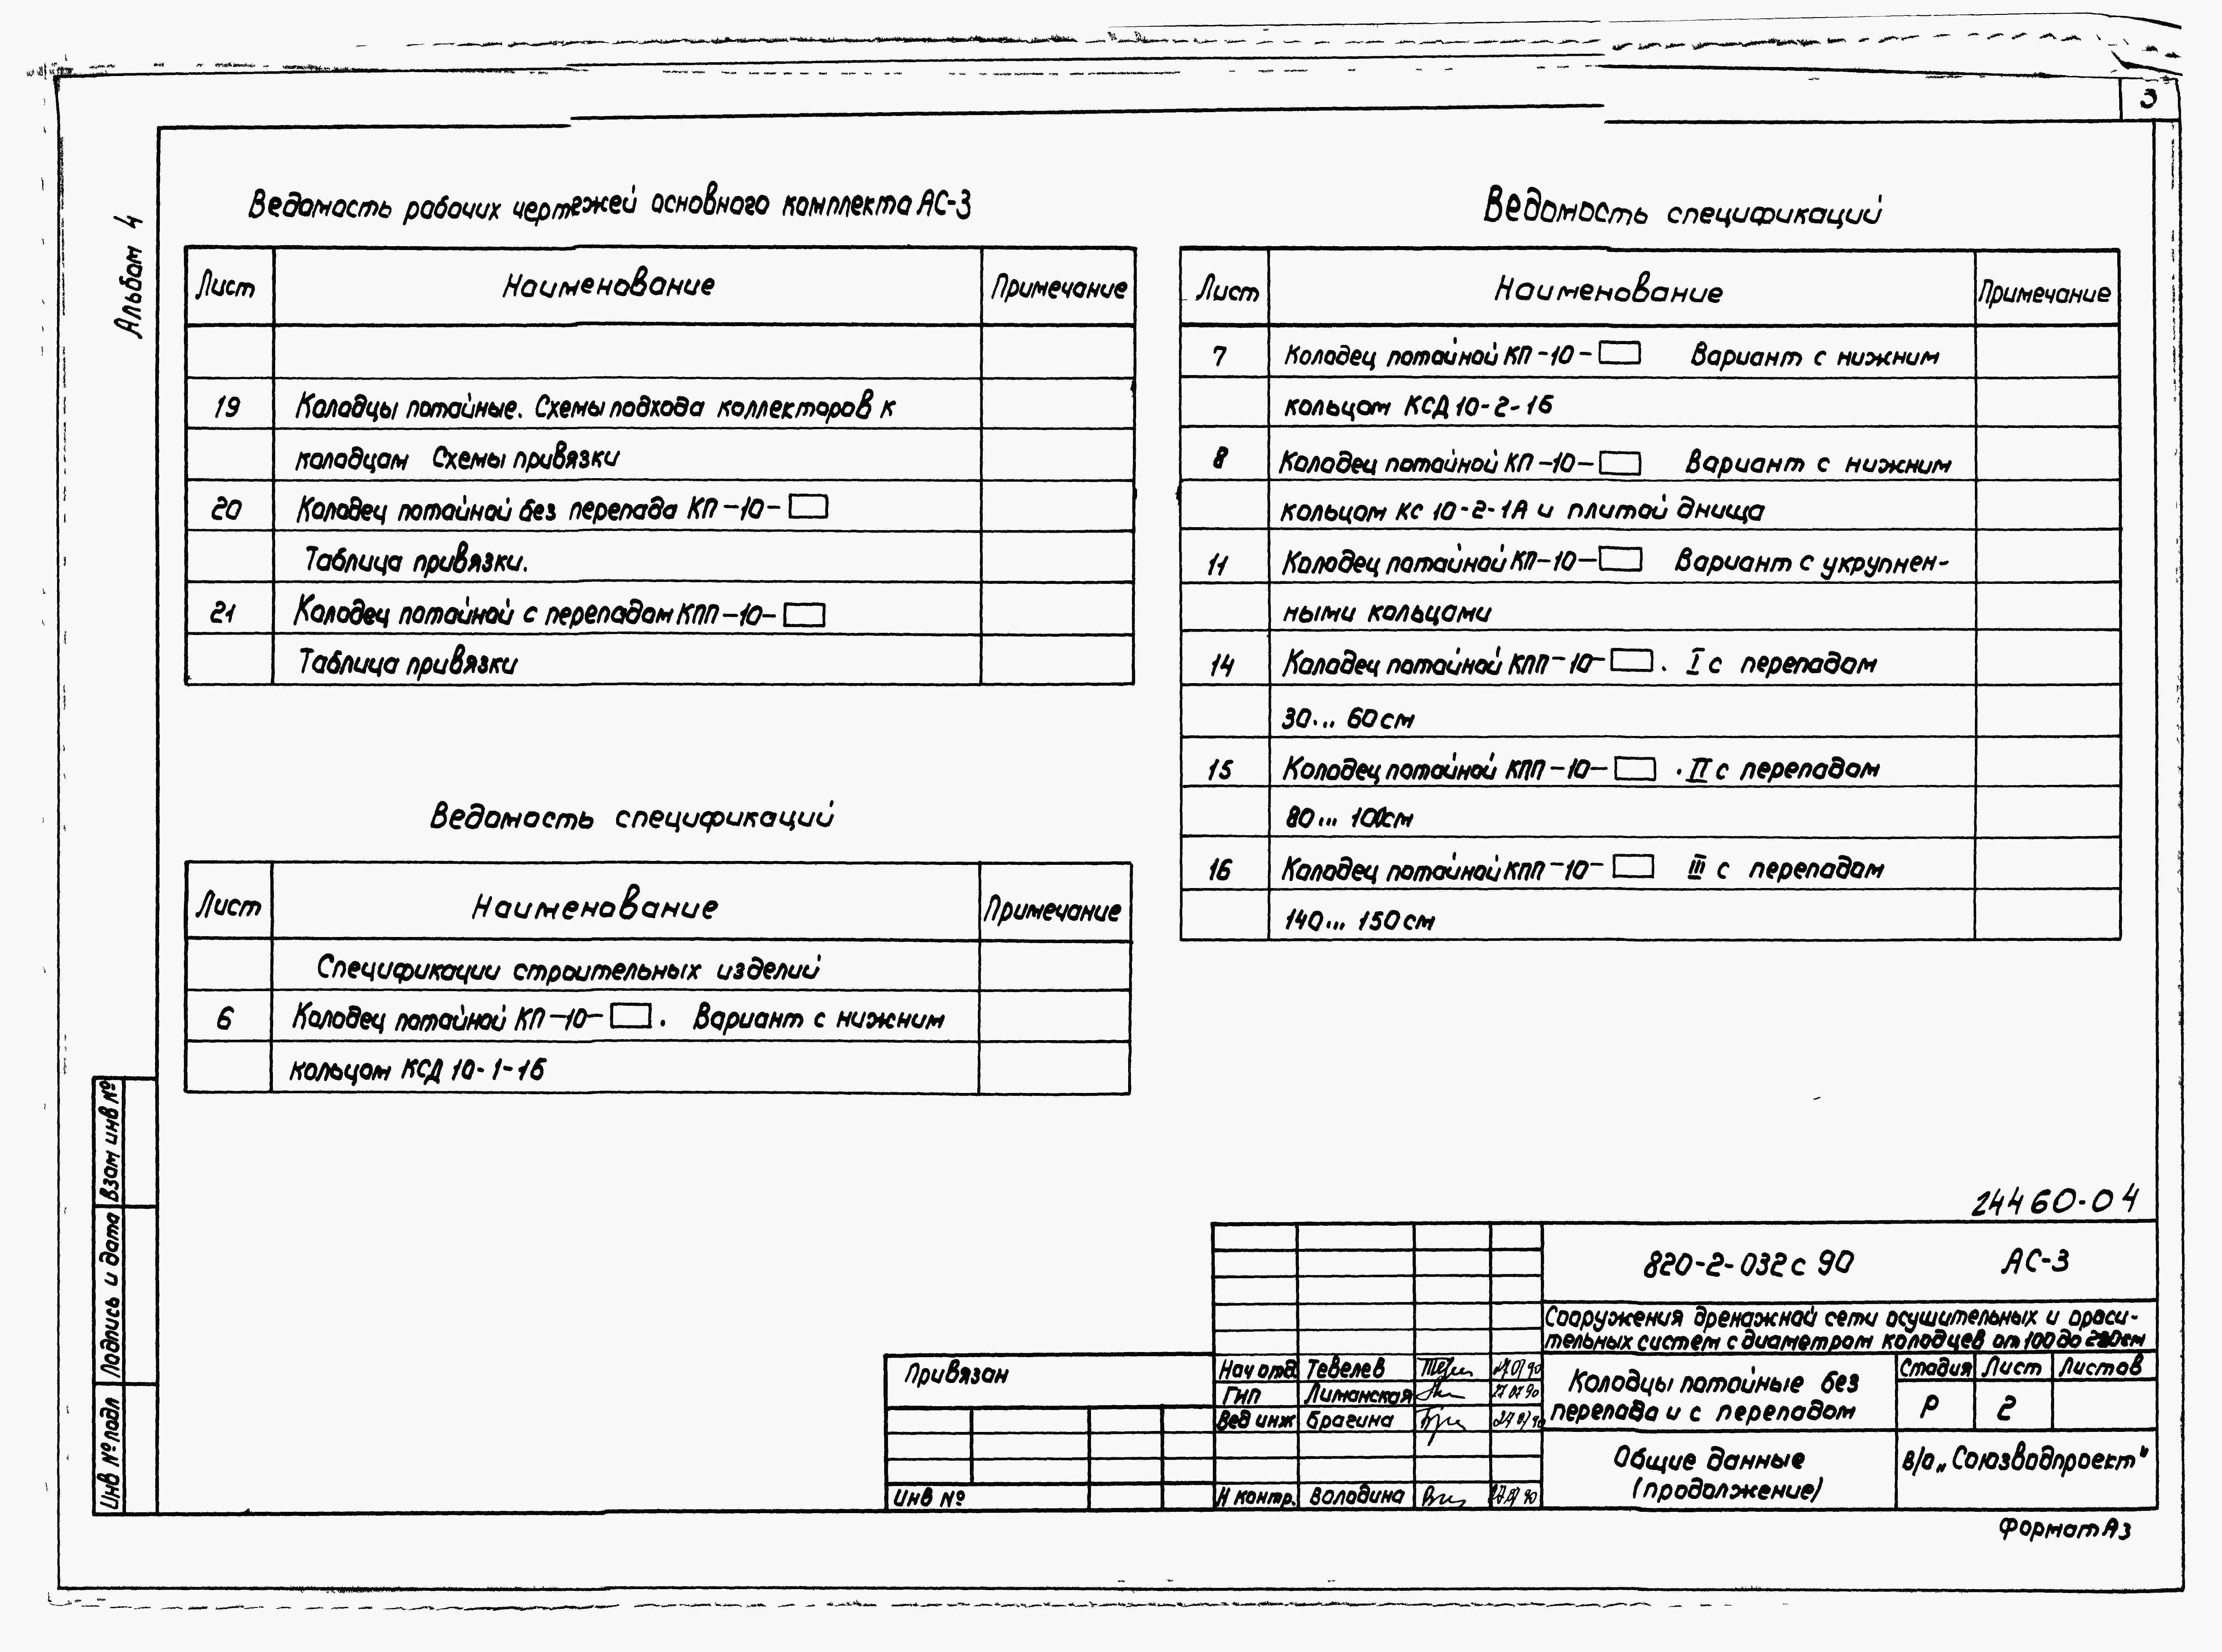 3
Альбом 4
Ведомость рабочих чертежей основного комплекта АС-3
Лист Наименование Примечание
19 Колодцы потайные. Схемы подхода коллекторов к
колодцам Схемы привязки
20 Колодец потайной без перепада КП-10-
Таблица привязки.
21 Колодец потайной с перепадом КПП-10-
Таблица привязки
Ведомость спецификаций
Лист Наименование Примечание
Спецификации строительных изделий
6 Колодец потайной КП-10- . Вариант с нижним
кольцом КСД 10-1-1б
Ведомость спецификаций
Лист Наименование Примечание
7 Колодец потайной КП-10- Вариант с нижним
кольцом КСД 10-2-1б
8 Колодец потайной КП-10- Вариант с нижним
кольцом КС 10-2-1А и плитой днища
11 Колодец потайной КП-10- Вариант с укрупнен-
ными кольцами
14 Колодец потайной КПП-10- . I с перепадом
30... 60 см
15 Колодец потайной КПП-10- . II с перепадом
80... 100см
16 Колодец потайной КПП-10- III с перепадом
140... 150 см
Взам инв №
Подпись и дата
Инв № подл
24460-04
820-2-032с 90 АС-3
Сооружения дренажной сети осушительных и ороси-
тельных систем с диаметром колодцев от 100 до см
Привязан
Инв №
Нач отд Тевелев 27.07.90
ГИП Лиманская 27.07.90
Вед инж Брагина 27.07.90
Н контр. Володина 27.07.90
Колодцы потайные без
перепада и с перепадом
Стадия Лист Листов
Р 2
Общие данные
(продолжение)
в/о „Союзводпроект"
Формат А3